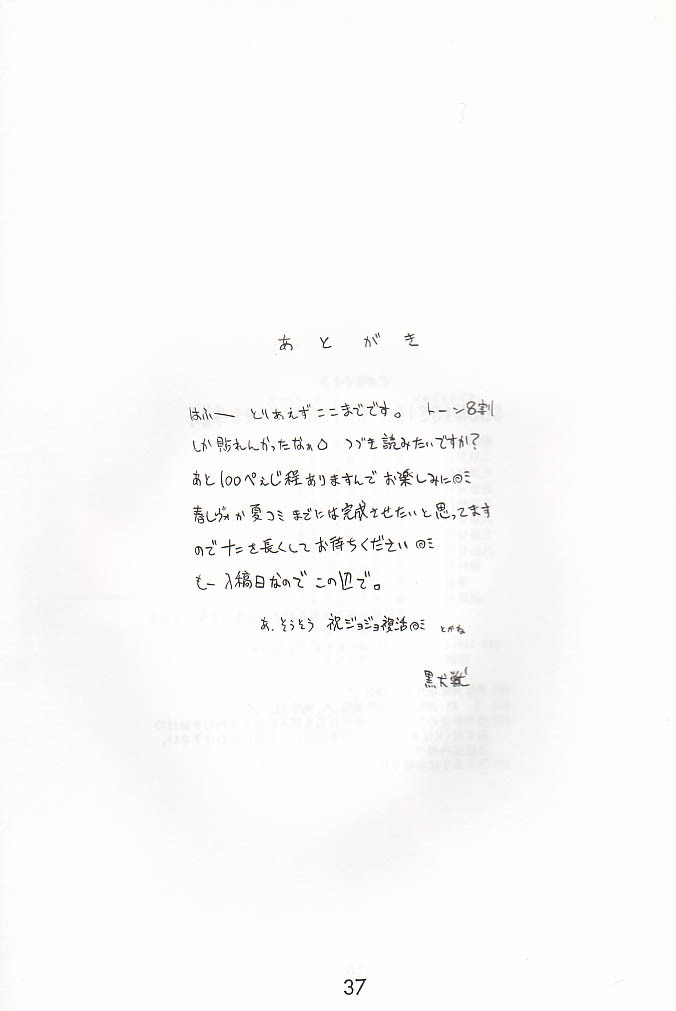 あとがき
はふー とりあえずここまでです。 トーン8割
しか貼れんかったなぁ○ つづき読みたいですか?
あと100ぺぇじ程ありますんでお楽しみに◎ミ
春レヴォか夏コミまでには完成させたいと思ってます
ので十二を長くしてお待ちください◎ミ
もー入稿日なのでこの辺で。
あ、そうそう 祝ジョジョ復活◎ミ とかね
黒犬獣
37